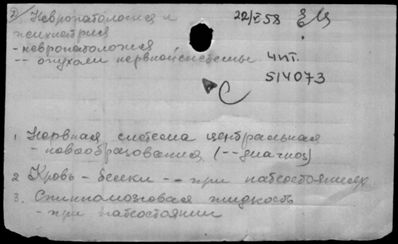 Невропатология и 22/X 58
психиатрия
- невропатология
-- опухоли нервной системы чит.
514073
С
1. Нервная система центральная
- новообразования (--диагноз)
2 Кровь - белки -- при патсостояниях
3. Спинномозговая жидкость
- при патсостоянии